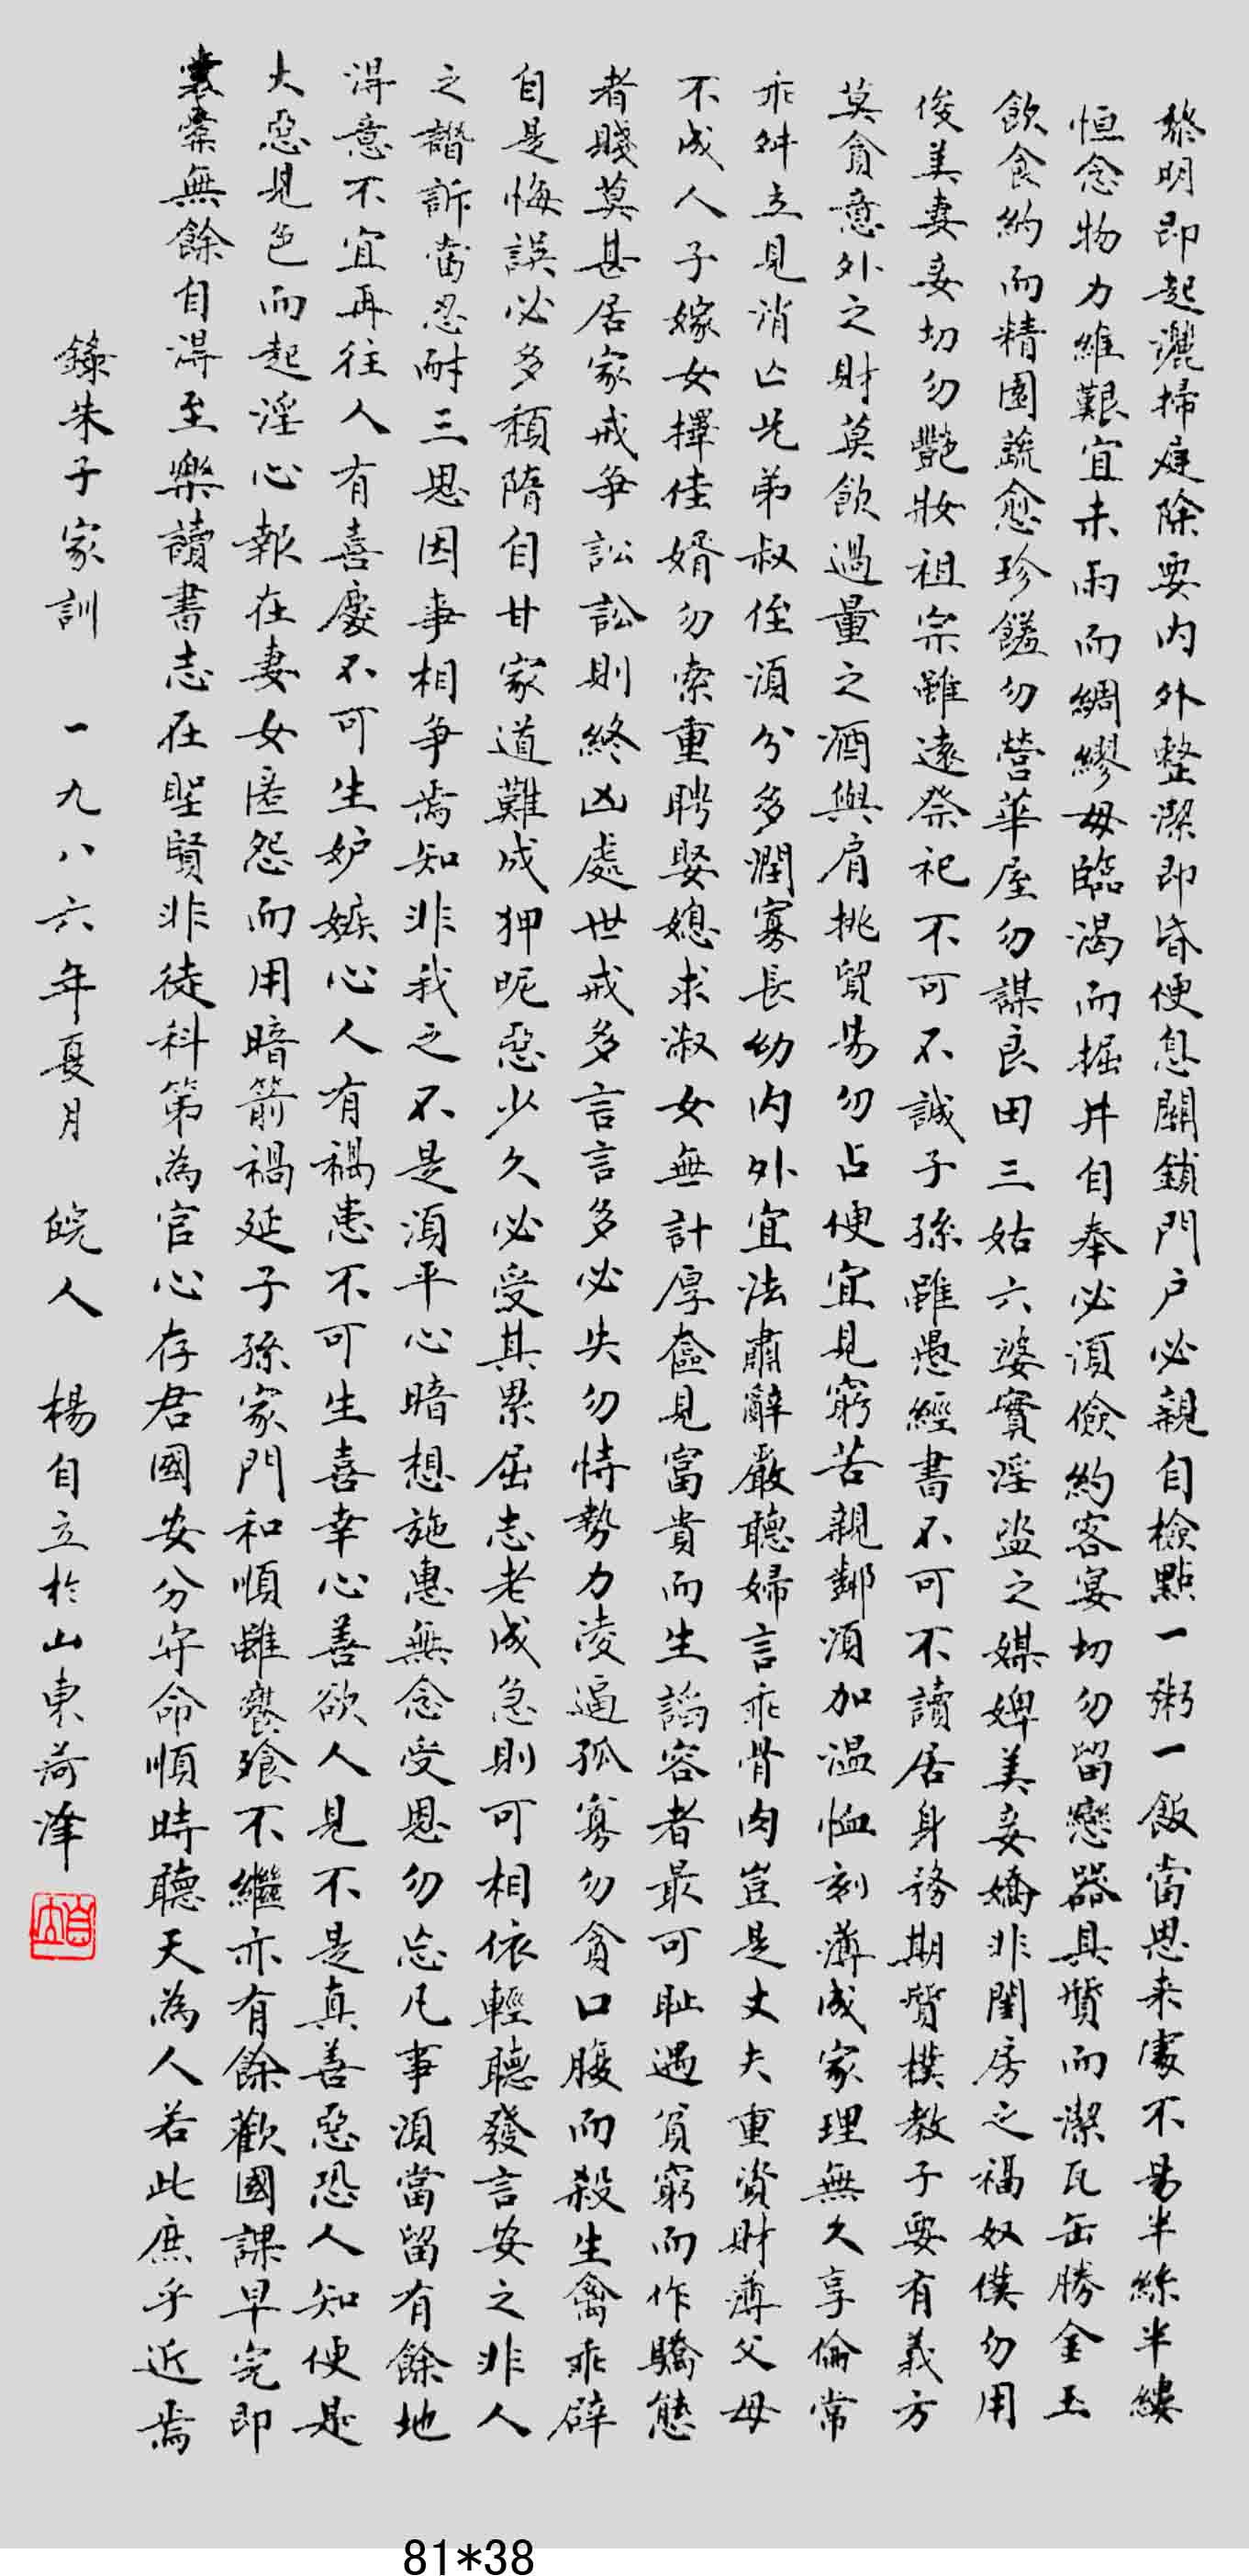 黎明即起灑掃庭除要内外整潔即昏便息關鎖門户必親自檢點一粥一飯當思来處不易半絲半縷
恒念物力維艱宜未雨而綢繆毋臨渴而掘井自奉必須儉約客宴切勿留戀器具質而潔瓦缶勝金玉
飲食約而精園蔬愈珍饈勿營華屋勿謀良田三姑六婆實淫盗之媒婢美妾嬌非閨房之福奴僕勿用
俊美妻妾切勿艷妝祖宗雖遠祭祀不可不誠子孫雖愚經書不可不讀居身務期質樸教子要有義方
莫貪意外之財莫飲過量之酒與肩挑貿易勿占便宜見窮苦親鄰須加温恤刻薄成家理無久享倫常
乖舛立見消亡兄弟叔侄須分多潤寡長幼内外宜法肅辭嚴聽婦言乖骨肉豈是丈夫重資財薄父母
不成人子嫁女擇佳婿勿索重聘娶媳求淑女無計厚奩見富貴而生諂容者最可耻遇貧窮而作驕態
者賤莫甚居家戒爭訟訟則終凶處世戒多言言多必失勿恃勢力凌逼孤寡勿貪口腹而殺生禽乖僻
自是悔誤必多頹隋自甘家道難成狎昵惡少久必受其累屈志老成急則可相依輕聽發言安之非人
之譖訴當忍耐三思因事相爭焉知非我之不是須平心暗想施惠無念受恩勿忘凡事須當留有餘地
得意不宜再往人有喜慶不可生妒嫉心人有禍患不可生喜幸心善欲人見不是真善惡恐人知便是
大惡見色而起淫心報在妻女匿怨而用暗箭禍延子孫家門和順雖饔飧不繼亦有餘歡國課早完即
囊橐無餘自得至樂讀書志在聖賢非徒科第為官心存君國安分守命順時聽天為人若此庶乎近焉
錄朱子家訓 一九八六年夏月 皖人 楊自立於山東荷澤
81*38